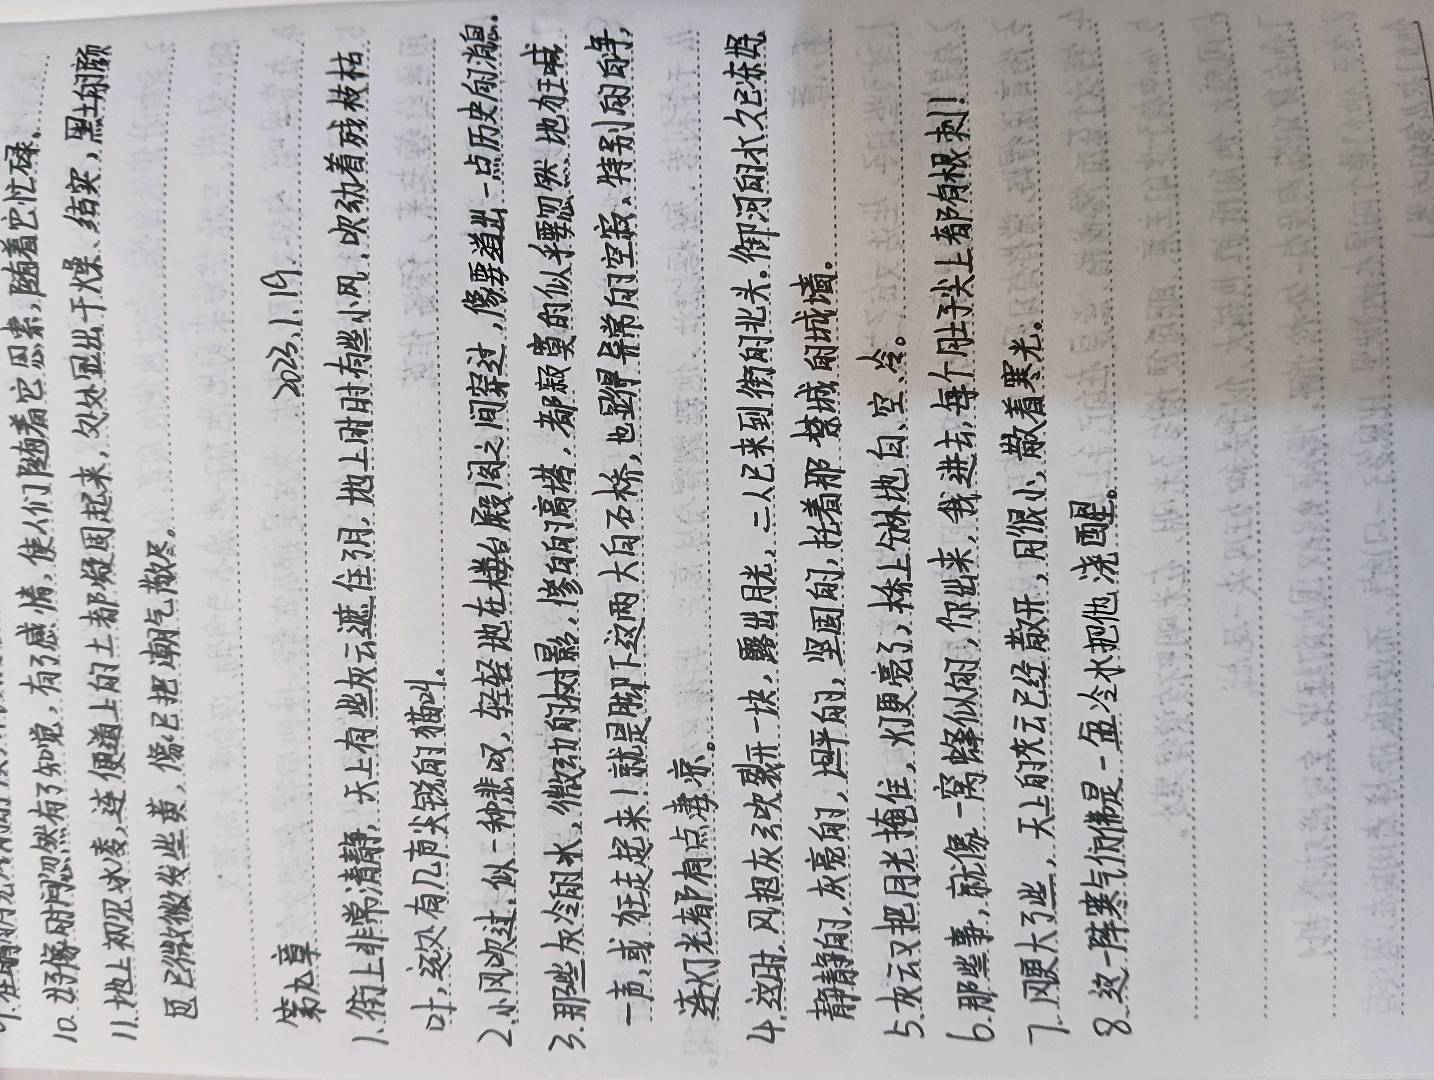 10.好像时间忽然有了知觉，有了感情，使人们随着它思索，随着它忙碌。
11.地上初见冰凌，连便道上的土都凝固起来，处处显出干燥、结实，黑土的颜
色已微微发些黄，像已把潮气散尽。
2023.1.19
第九章
1.街上非常清静，天上有些灰云遮住了月，地上时时有些小风，吹动着残枝枯
叶，远处有几声尖锐的猫叫。
2.小风吹过，似一种悲叹，轻轻地在楼台殿阁之间穿过，像要道出一点历史的消息。
3.那些灰冷的冰，微动的树影，惨白的高塔，都寂寞的似乎要忽然地狂喊
一声，或狂走起来！就是脚下这两大白石桥，也显得异常的空寂，特别的白净，
连灯光都有点凄凉。
4.这时，风把灰云吹裂开一块，露出月光，二人已来到街的北头。御河的水久已冻好，
静静的，灰亮的，坦平的，坚固的，托着那禁城的城墙。
5.灰云又把月光掩住，灯更亮了，桥上分外地白、空、冷。
6.那些事，就像一窝蜂似的，你出来，我进去，每个肚子尖上都有根刺！
7.风更大了些，天上的灰云已经散开，月很小，散着寒光。
8.这一阵寒气仿佛是一盆冷水把他浇醒。